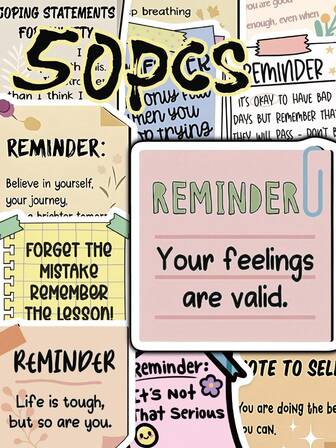 COPING STATEMENTS
FO
50PCS
breathing
you are good
enough, even when
his.
than I think I
only
when you
trying
REMINDER
IT'S OKAY TO HAVE BAD
DAYS BUT REMEMBER THA
THEY WILL PASS - DON'T
REMINDER:
Believe in yourself,
your journey,
a brighter
REMINDER
Your feelings
are valid.
FORGET THE
MISTAKE
REMEMBER
THE LESSON!
REMINDER
Life is tough,
but so are you.
Reminder:
It's Not
That Serious
OTE TO SEL
You are doing the be
you can.